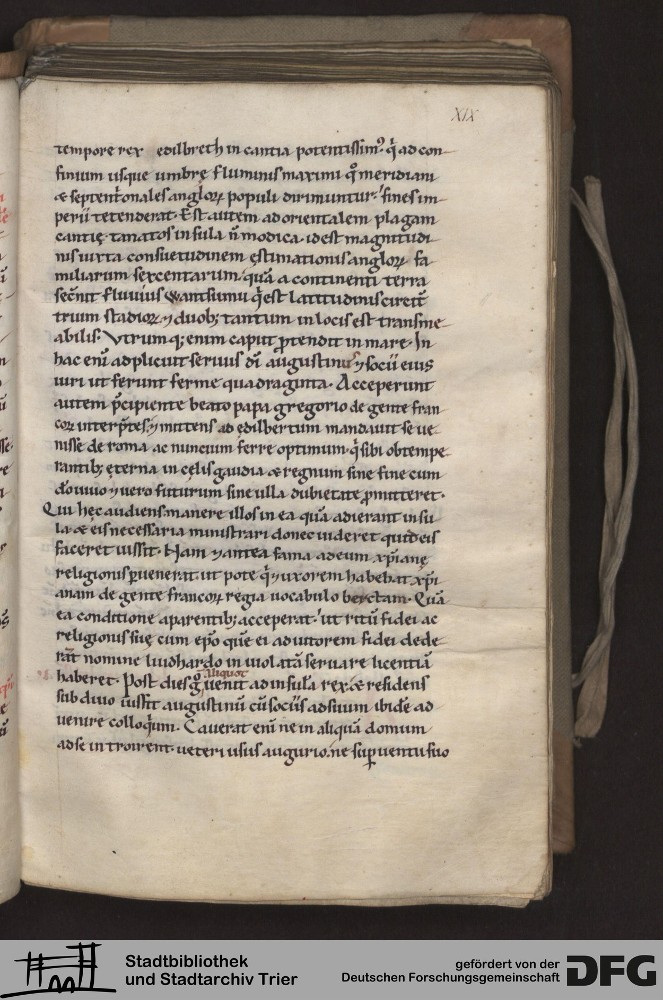 XIX
tempore rex edilbreth in cantia potentissim᷒. q̓ ad con-
finium usque umbrę fluminis maximi q̊ meridiani
& septent̓onales anglorꝝ populi dirimuntur. fines im-
perii tetenderat. Est autem ad orientalem plagam
cantię. tanatos insula n̄ modica. id est magnitudi
nis iuxta consuetudinem ęstimationis anglorꝝ fa
miliarum sexcentarum. quā a continenti terra
secc̓nit fluvius uuantsumu q̓ est latitudinis circit̄
trium stadiorꝝ ⁊ duob; tantum in locis est transme-
abilis. Vtrumq; enim caput ꝓtendit in mare. In
hac eni᷒ adplicuit servus dī augustinus ⁊ socii eius
uiri ut ferunt ferme quadraginta. Acceperunt
autem p̄cipiente beato papa gregorio de gente fran-
corꝝ interp̄tes. ⁊ mittens ad edilbertum mandauit se ue-
nisse de roma ac nuncium ferre optimum. q̓ sibi obtempe-
rantib; ęterna in cęlis gaudia & regnum sine fine cum
dō uiuo ⁊ uero futurum sine ulla dubietate ꝓmitteret.
Qui hęc audiens manere illos in ea quā adierant insu-
la & eis necessaria ministrari donec uideret quid eis
faceret iussit. Nam ⁊ antea fama ad eum xp̄ianę
religionis ꝑuenerat. ut pote q̓ ⁊ uxorem habebat xp̄i
anam de gente francorꝝ regia uocabulo berctam. Quā
ea conditione a parentib; acceperat. ut ritū fidei ac
religionis suę cum epō que᷒ ei adiutorem fidei dede
rāt nomine luidhardo inuiolatā seruare licentiā
aliquot
haberet. Post dies g̊ uenit ad insulā rex. & residens
sub diuo iussit augustinū cū sociis ad suum ibidē ad-
uenire colloq̓um. Cauerat enī ne in aliquā domum
ad se introirent. ueteri usus augurio. ne suꝑuentu suo
Stadtbibliothek
und Stadtarchiv Trier
gefördert von der
Deutschen Forschungsgemeinschaft
DFG